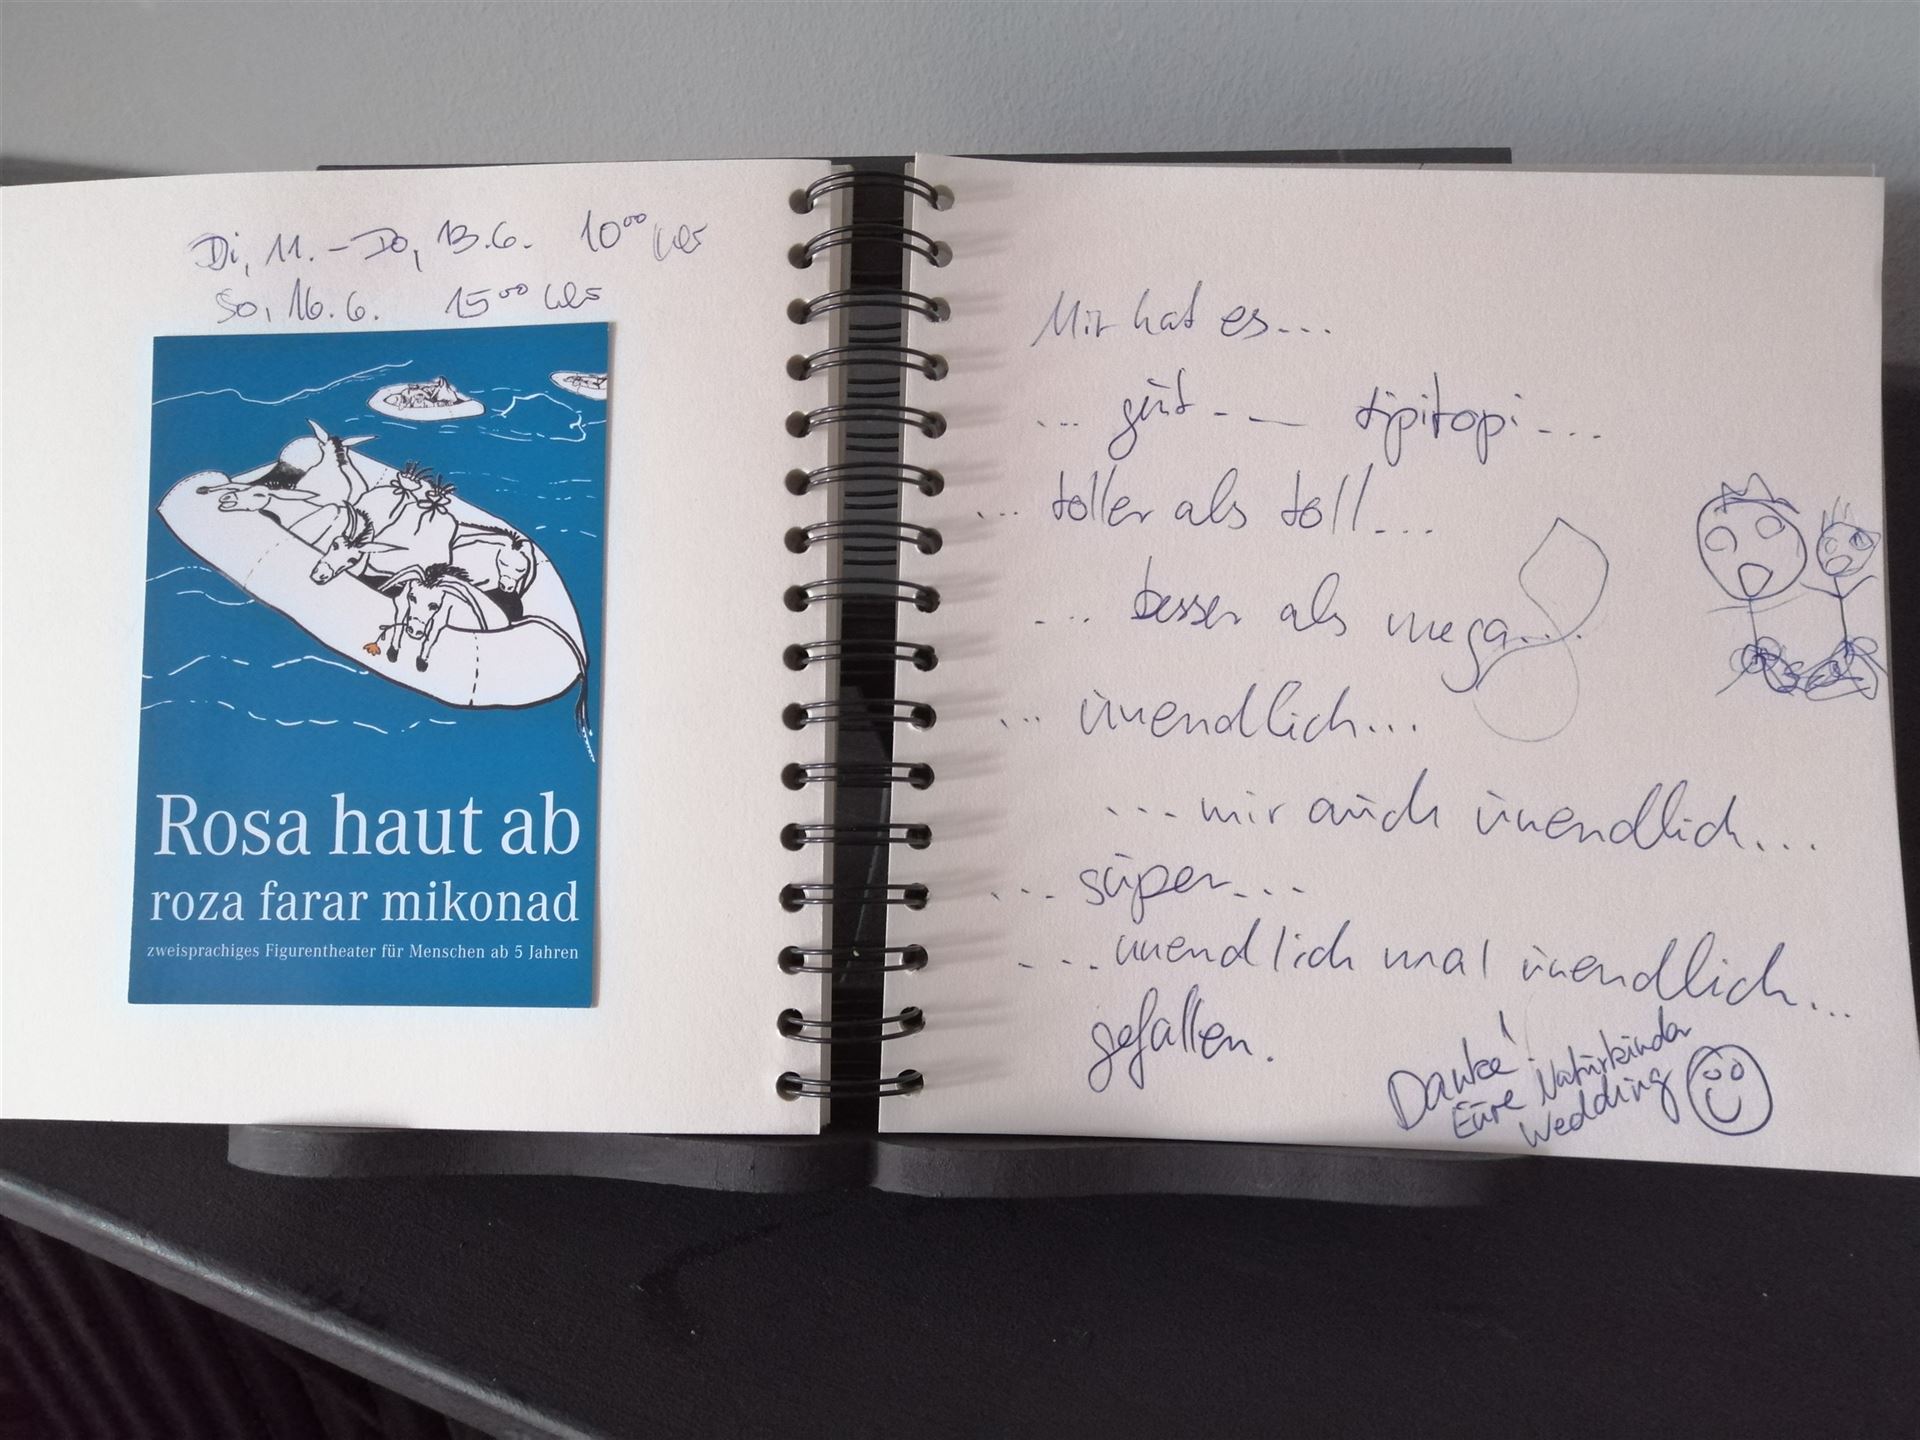 Di, 11. - Do, 13.6. 10⁰⁰ Uhr
So, 16.6. 15⁰⁰ Uhr
Rosa haut ab
roza farar mikonad
zweisprachiges Figurentheater für Menschen ab 5 Jahren
Mir hat es...
... gut - - tipitopi...
... toller als toll...
... besser als mega...
... unendlich...
... mir auch unendlich...
... super...
... unendlich mal unendlich...
gefallen.
Danke!
Eure Naturkinder
Wedding